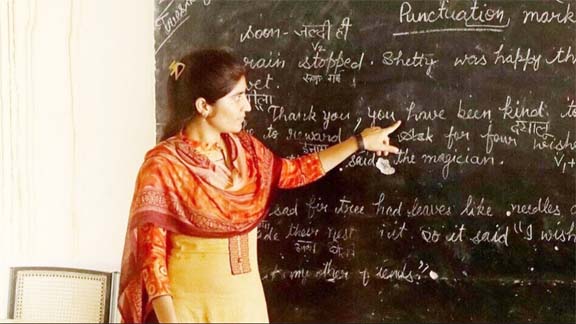 Punctuation, mark
soon - जल्दी ही
V2
rain stopped. Shetty was happy th
रुक गई
wet.
गीला
Thank you, you have been kind. to
दयालु
to reward for four wishes
ईनाम
said the magician. V1+
sad fir tree had leaves like needles
their nest it so it said "I wish
my other friends."